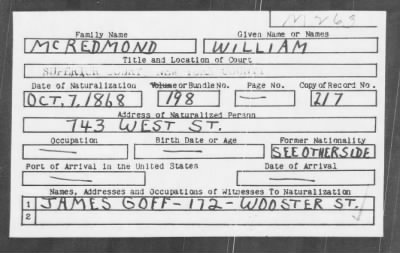 M263
Family Name Given Name or Names
MCREDMOND WILLIAM
Title and Location of Court
SUPERIOR COURT, NEW YORK COUNTY
Date of Naturalization Volume or Bundle No. Page No. Copy of Record No.
OCT. 7, 1868 198 — 217
Address of Naturalized Person
743 WEST ST.
Occupation Birth Date or Age Former Nationality
— — SEE OTHERSIDE
Port of Arrival in the United States Date of Arrival
— —
Names, Addresses and Occupations of Witnesses To Naturalization
1 JAMES GOFF - 172 - WOOSTER ST.
2